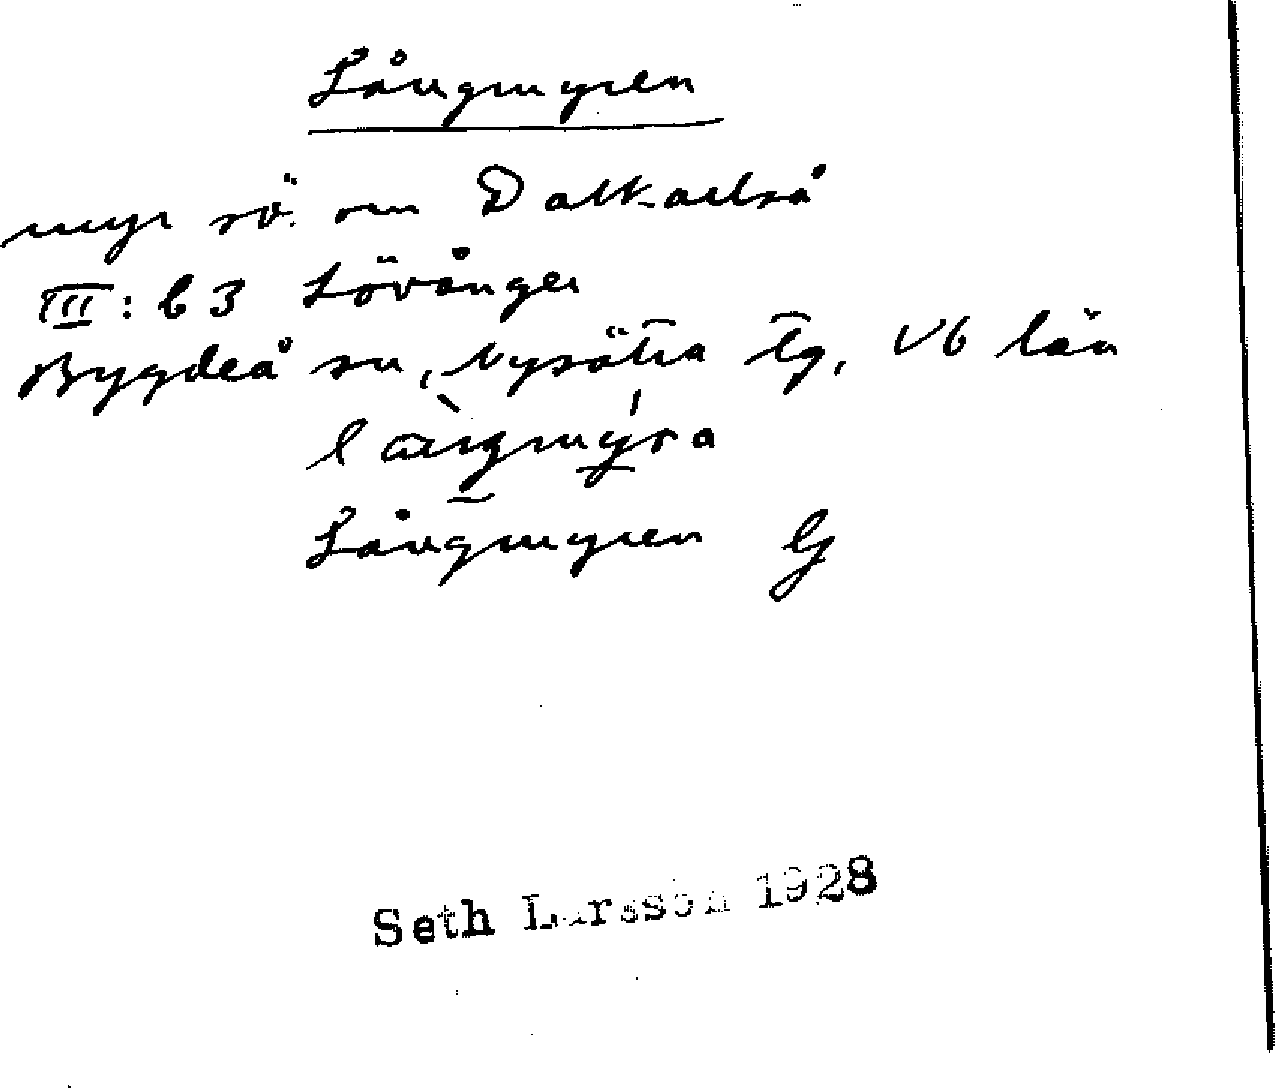 Långmyren
myr sö. om Dalkarlså
III: b 3 Lövånger
Bygdeå sn, Nysätra tg, Vb län
Långmyren G
Seth Larsson 1928